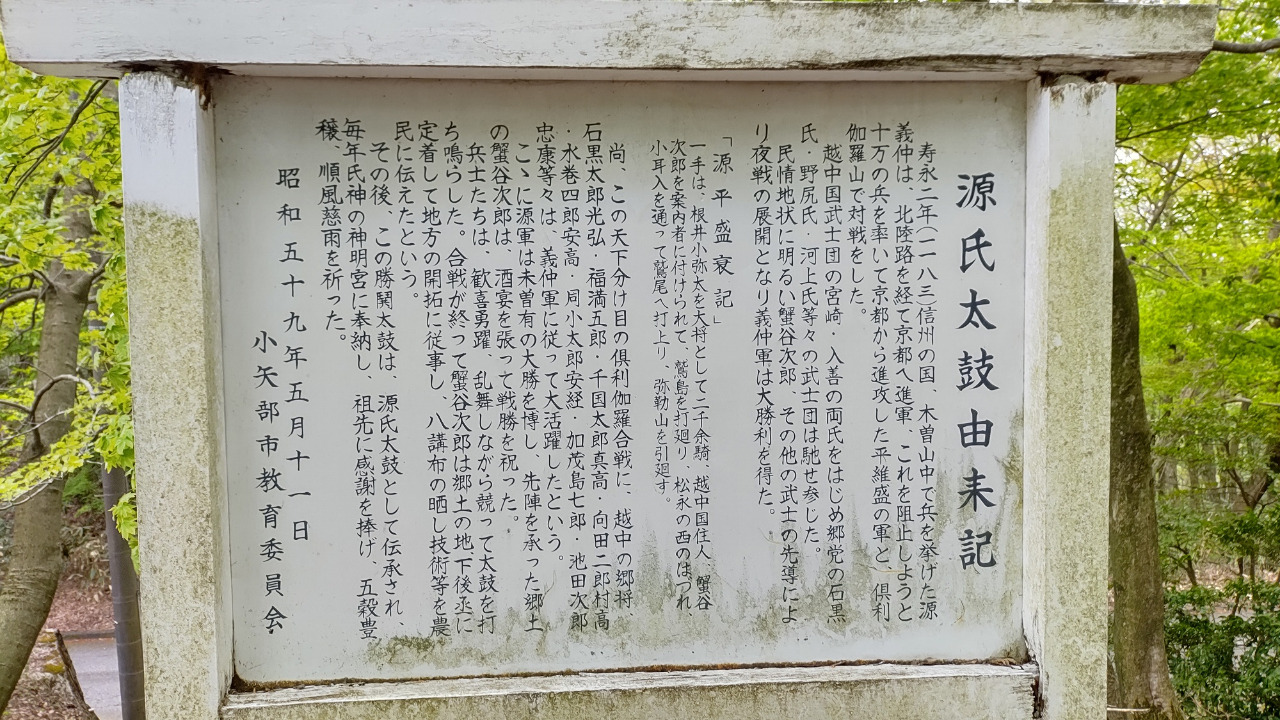 源氏太鼓由来記
寿永二年(一一八三)信州の国、木曽山中で兵を挙げた源
義仲は、北陸路を経て京都へ進軍、これを阻止しようと
十万の兵を率いて京都から進攻した平維盛の軍と、倶利
伽羅山で対戦をした。
越中国武士団の宮崎・入善の両氏をはじめ郷党の石黒
氏・野尻氏・河上氏等々の武士団は馳せ参じた。
民情地状に明るい蟹谷次郎、その他の武士の先導によ
り夜戦の展開となり義仲軍は大勝利を得た。
「源平盛衰記」
一手は、根井小弥太を大将として二千余騎、越中国住人、蟹谷
次郎を案内者に付けられて、鷲島を打廻り、松永の西のはづれ、
小耳入を通って鷲尾へ打上り、弥勒山を引廻す。
尚、この天下分け目の倶利伽羅合戦に、越中の郷将、
石黒太郎光弘・福満五郎・千国太郎真高・向田二郎村高
・水巻四郎安高・同小太郎安経・加茂島七郎・池田次郎
忠康等々は、義仲軍に従って大活躍したという。
こゝに源軍は未曽有の大勝を博し、先陣を承った郷土
の蟹谷次郎は、酒宴を張って戦勝を祝った。
兵士たちは、歓喜勇躍、乱舞しながら競って太鼓を打
ち鳴らした。合戦が終って蟹谷次郎は郷土の地下後丞に
定着して地方の開拓に従事し、八講布の晒し技術等を農
民に伝えたという。
その後、この勝関太鼓は、源氏太鼓として伝承され、
毎年氏神の神明宮に奉納し、祖先に感謝を捧げ、五穀豊
穣、順風慈雨を祈った。
昭和五十九年五月十一日
小矢部市教育委員会